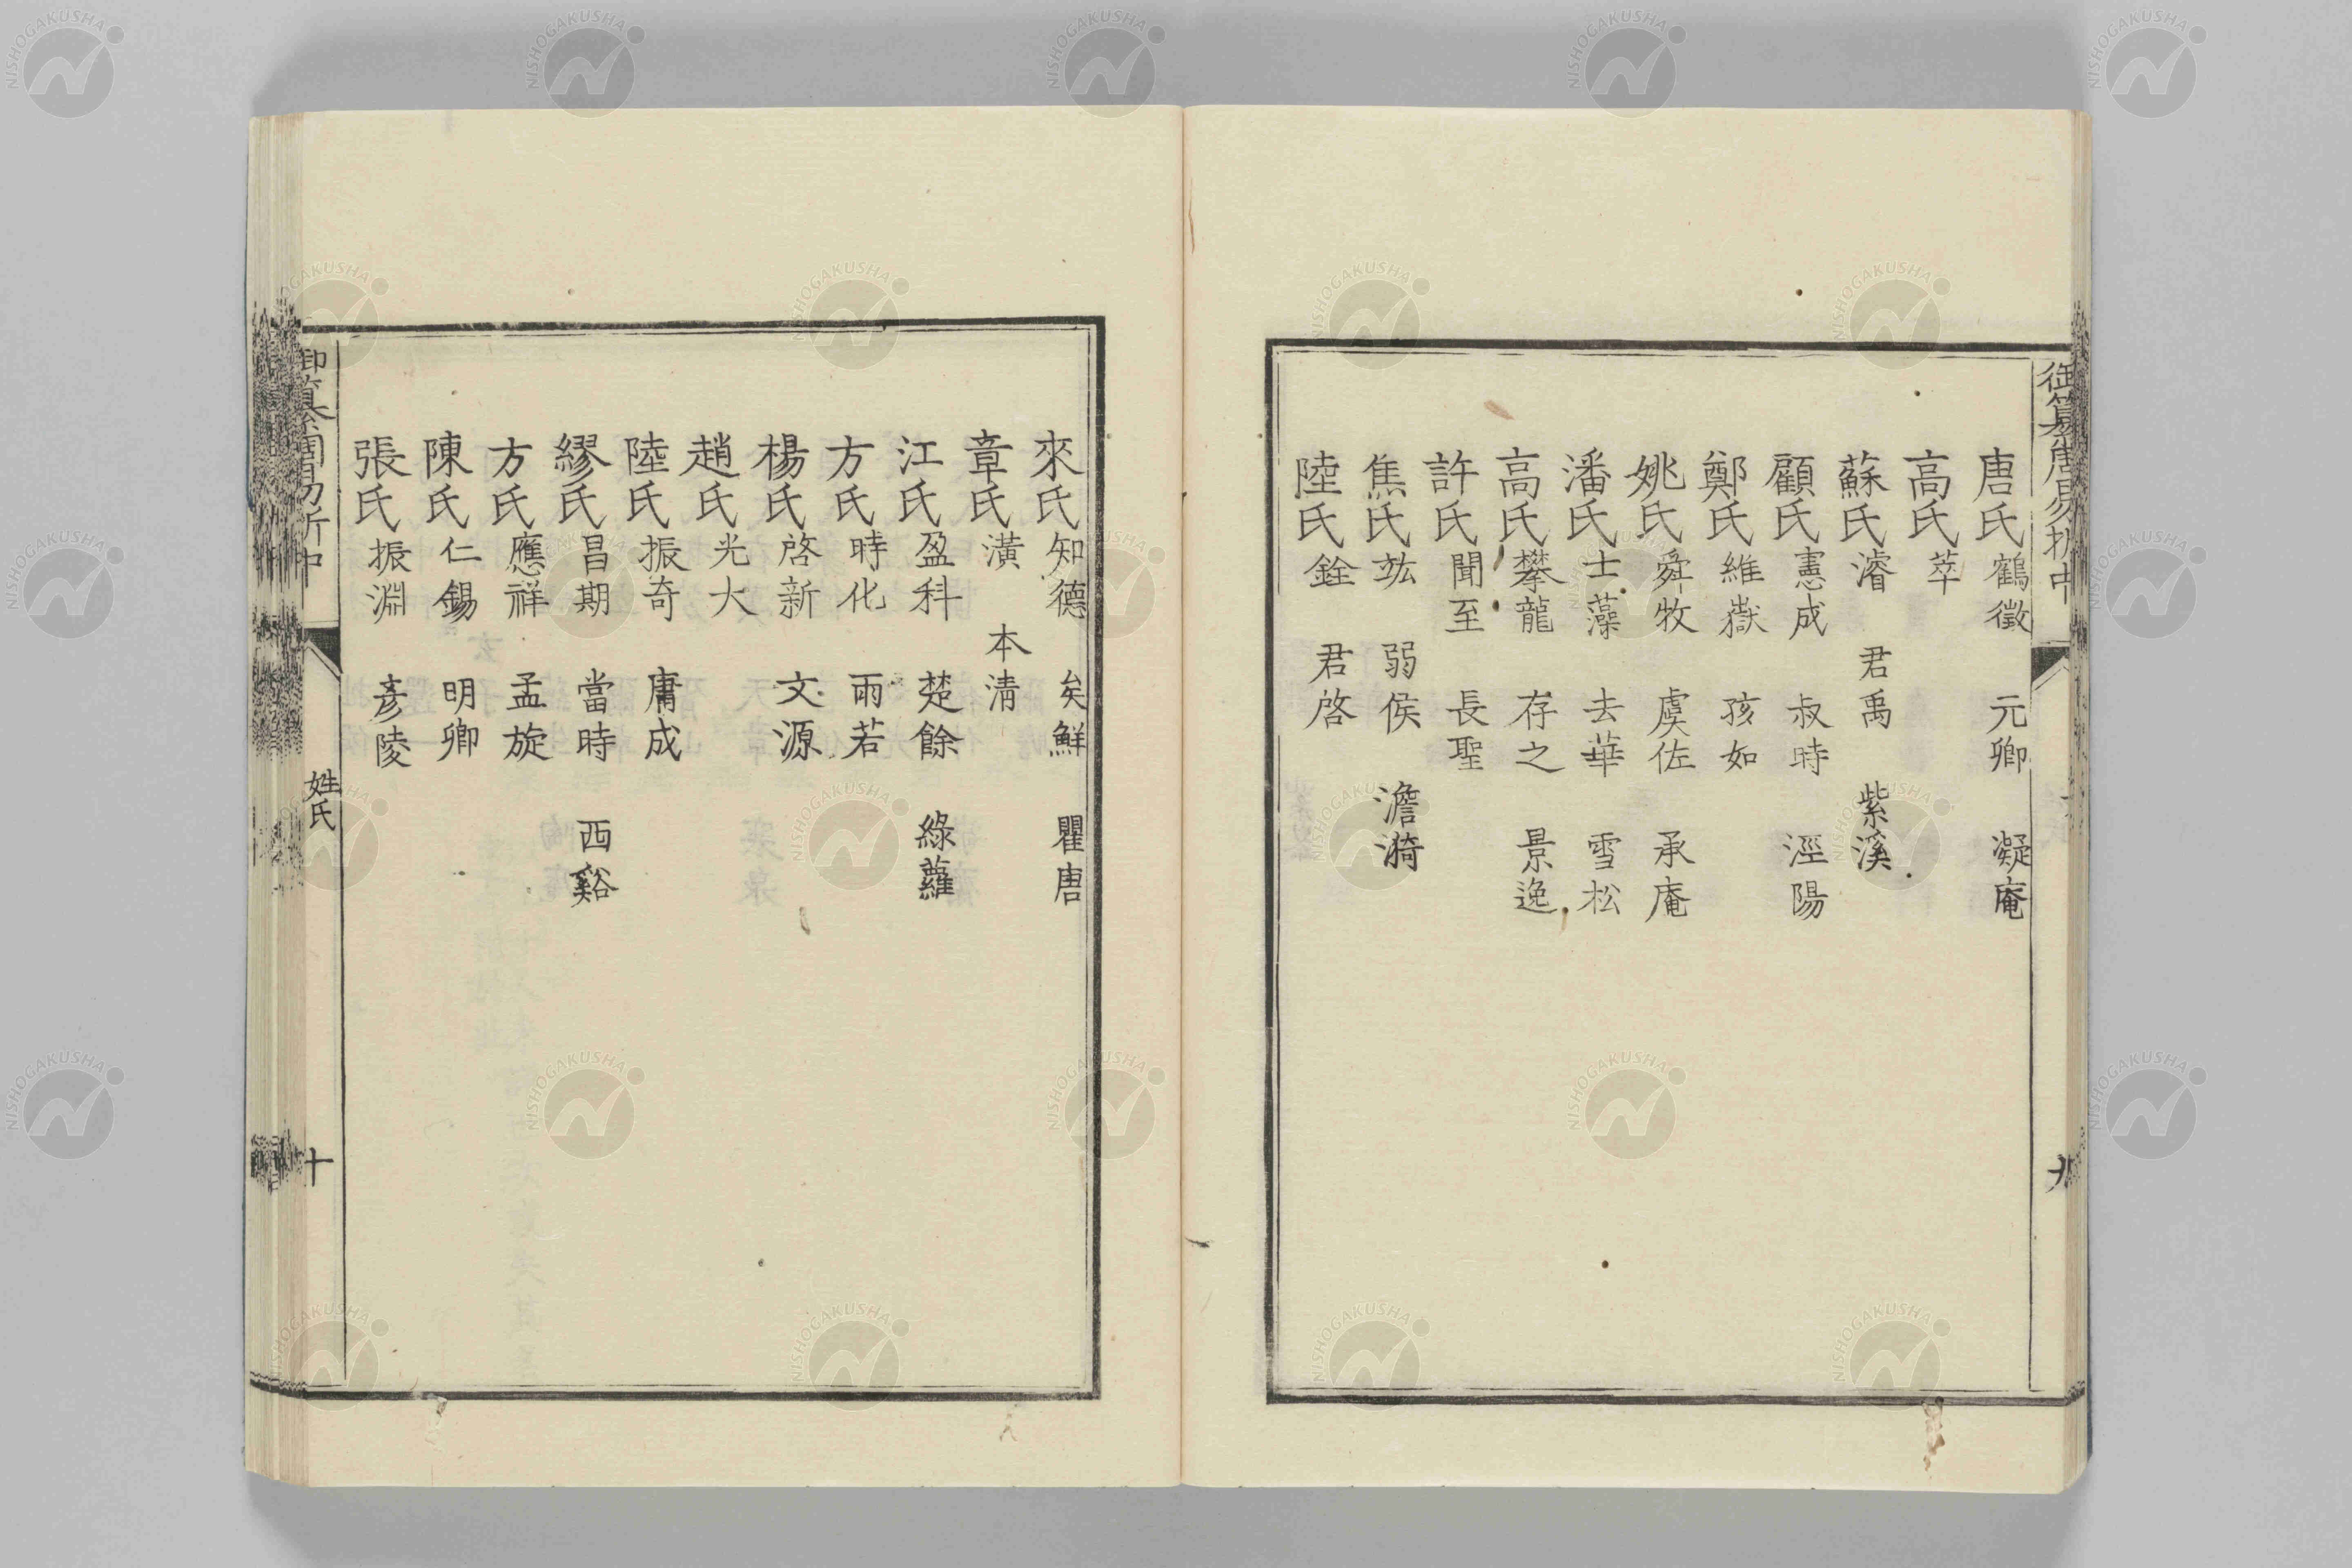 御纂周易折中
九
唐氏鶴徵 元卿 凝庵
高氏萃
蘇氏濬 君禹 紫溪
顧氏憲成 叔時 涇陽
鄭氏維嶽 孩如
姚氏舜牧 虞佐 承庵
潘氏士藻 去華 雪松
高氏攀龍 存之 景逸
許氏聞至 長聖
焦氏竑 弱侯 澹漪
陸氏銓 君啓
來氏知德 矣鮮 瞿唐
章氏潢 本清
江氏盈科 楚餘 綠蘿
方氏時化 雨若
楊氏啓新 文源
趙氏光大
陸氏振奇 庸成
繆氏昌期 當時 西谿
方氏應祥 孟旋
陳氏仁錫 明卿
張氏振淵 彥陵
御纂周易折中
姓氏
十
NISHOGAKUSHA